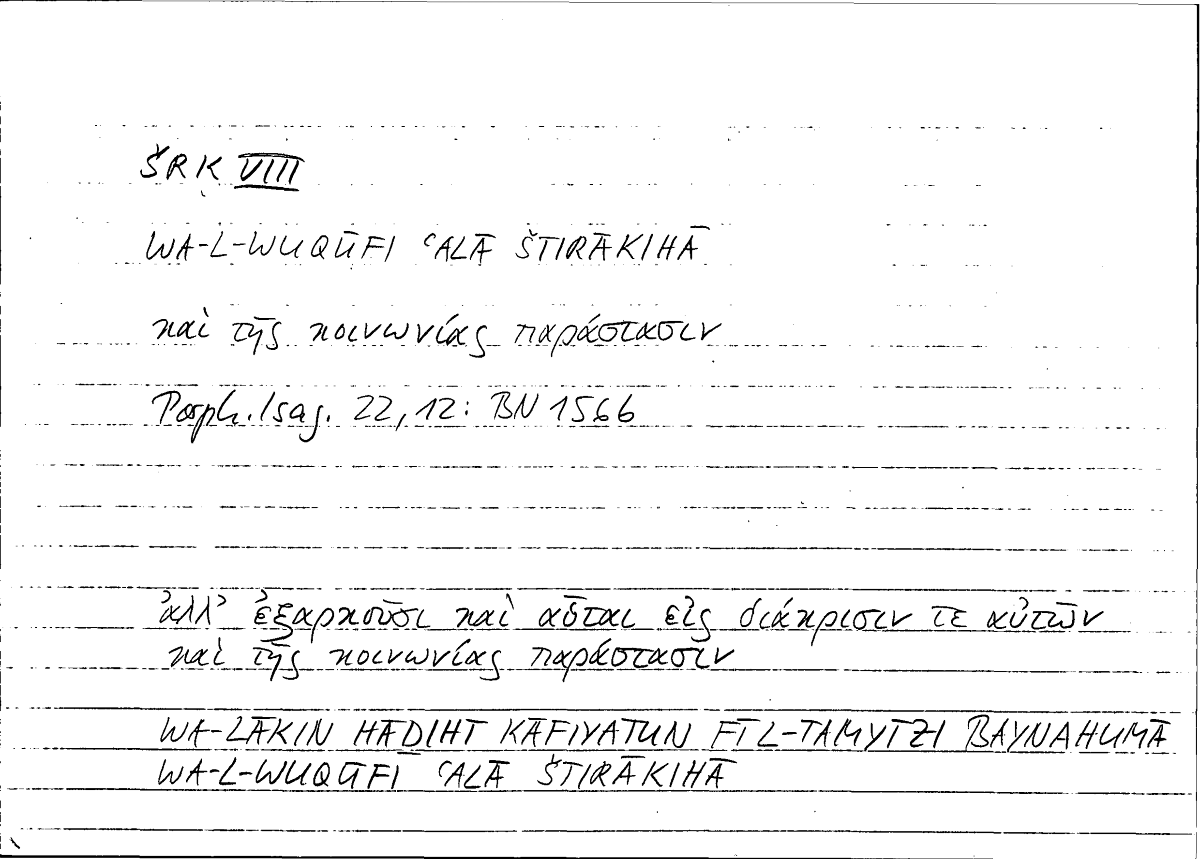 ŠRK VIII
WA-L-WUQŪFI ʿALĀ ŠTIRĀKIHĀ
καὶ τῆς κοινωνίας παράστασιν
Porph. Isag. 22,12: BN 1566
ἀλλ’ ἐξαρκοῦσι καὶ αὗται εἰς διάκρισίν τε αὐτῶν
καὶ τῆς κοινωνίας παράστασιν
WA-LĀKIN HĀḎIHI KĀFIYATUN FĪ L-TAMYĪZI BAYNAHUMĀ
WA-L-WUQŪFI ʿALĀ ŠTIRĀKIHĀ